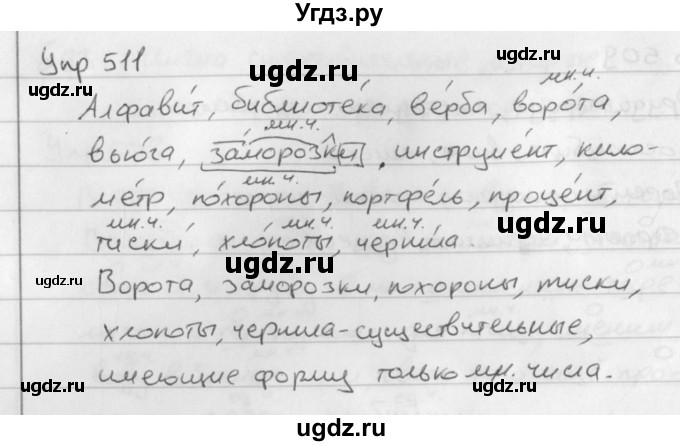 Угдз.ру
Упр 511
ugdz.ru ugdz.ru
мн.ч.
Алфави́т, библиоте́ка, ве́рба, воро́та,
ugdz.ru
мн.ч.
вью́га, за́морозки, инструме́нт, кило-
мн.ч.
ме́тр, по́хороны, портфе́ль, проце́нт,
ugdz.ru ugdz.ru
мн.ч. мн.ч. мн.ч.
тиски́, хло́поты, черни́ла
ugdz.ru ugdz.ru ugdz.ru
Ворота, заморозки, похороны, тиски,
хлопоты, чернила-существительные,
ugdz.ru ugdz.ru
имеющие форму только мн. числа.
ugdz.ru